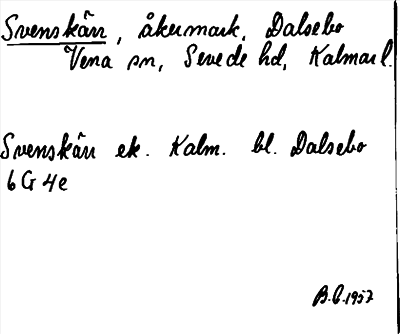 Svenskärr, åkermark, Dalsebo
Vena sn, Sevede hd, Kalmar l.
Svenskärr ek. Kalm. bl. Dalsebo
6 G 4 e
B.G. 1957